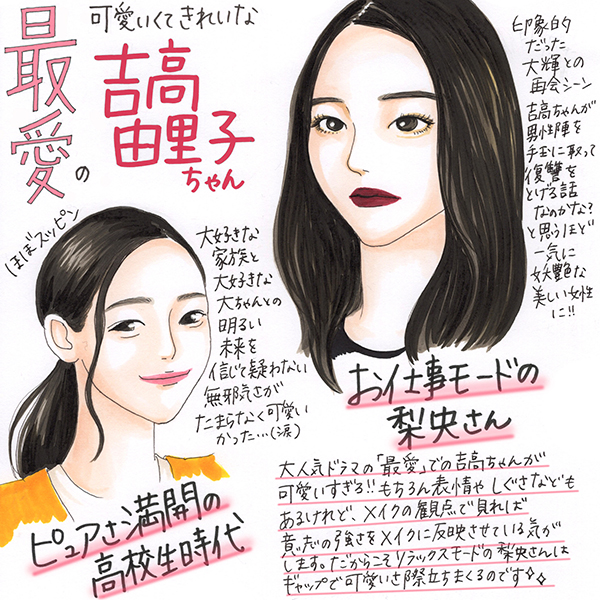 可愛いくてきれいな
最愛の
吉高
由里子
ちゃん
印象的
だった
大輝との
再会シーン
吉高ちゃんが
男性陣を
手玉に取って
復讐を
とげる話
なのかな?
と思うほど
一気に
妖艶な
美しい女性
に!!
ほぼスッピン
大好きな
家族と
大好きな
大ちゃんとの
明るい
未来を
信じて疑わない
無邪気さが
たまらなく可愛い
かった…(涙)
お仕事モードの
梨央さん
ピュアさ満開の
高校生時代
大人気ドラマの「最愛」での吉高ちゃんが
可愛いすぎる!!もちろん表情やしぐさなども
あるけれど、メイクの観点で見れば
意志の強さをメイクに反映させている気が
します。だからこそリラックスモードの梨央さんは
ギャップで可愛いさ際立ちまくるのです✧✧